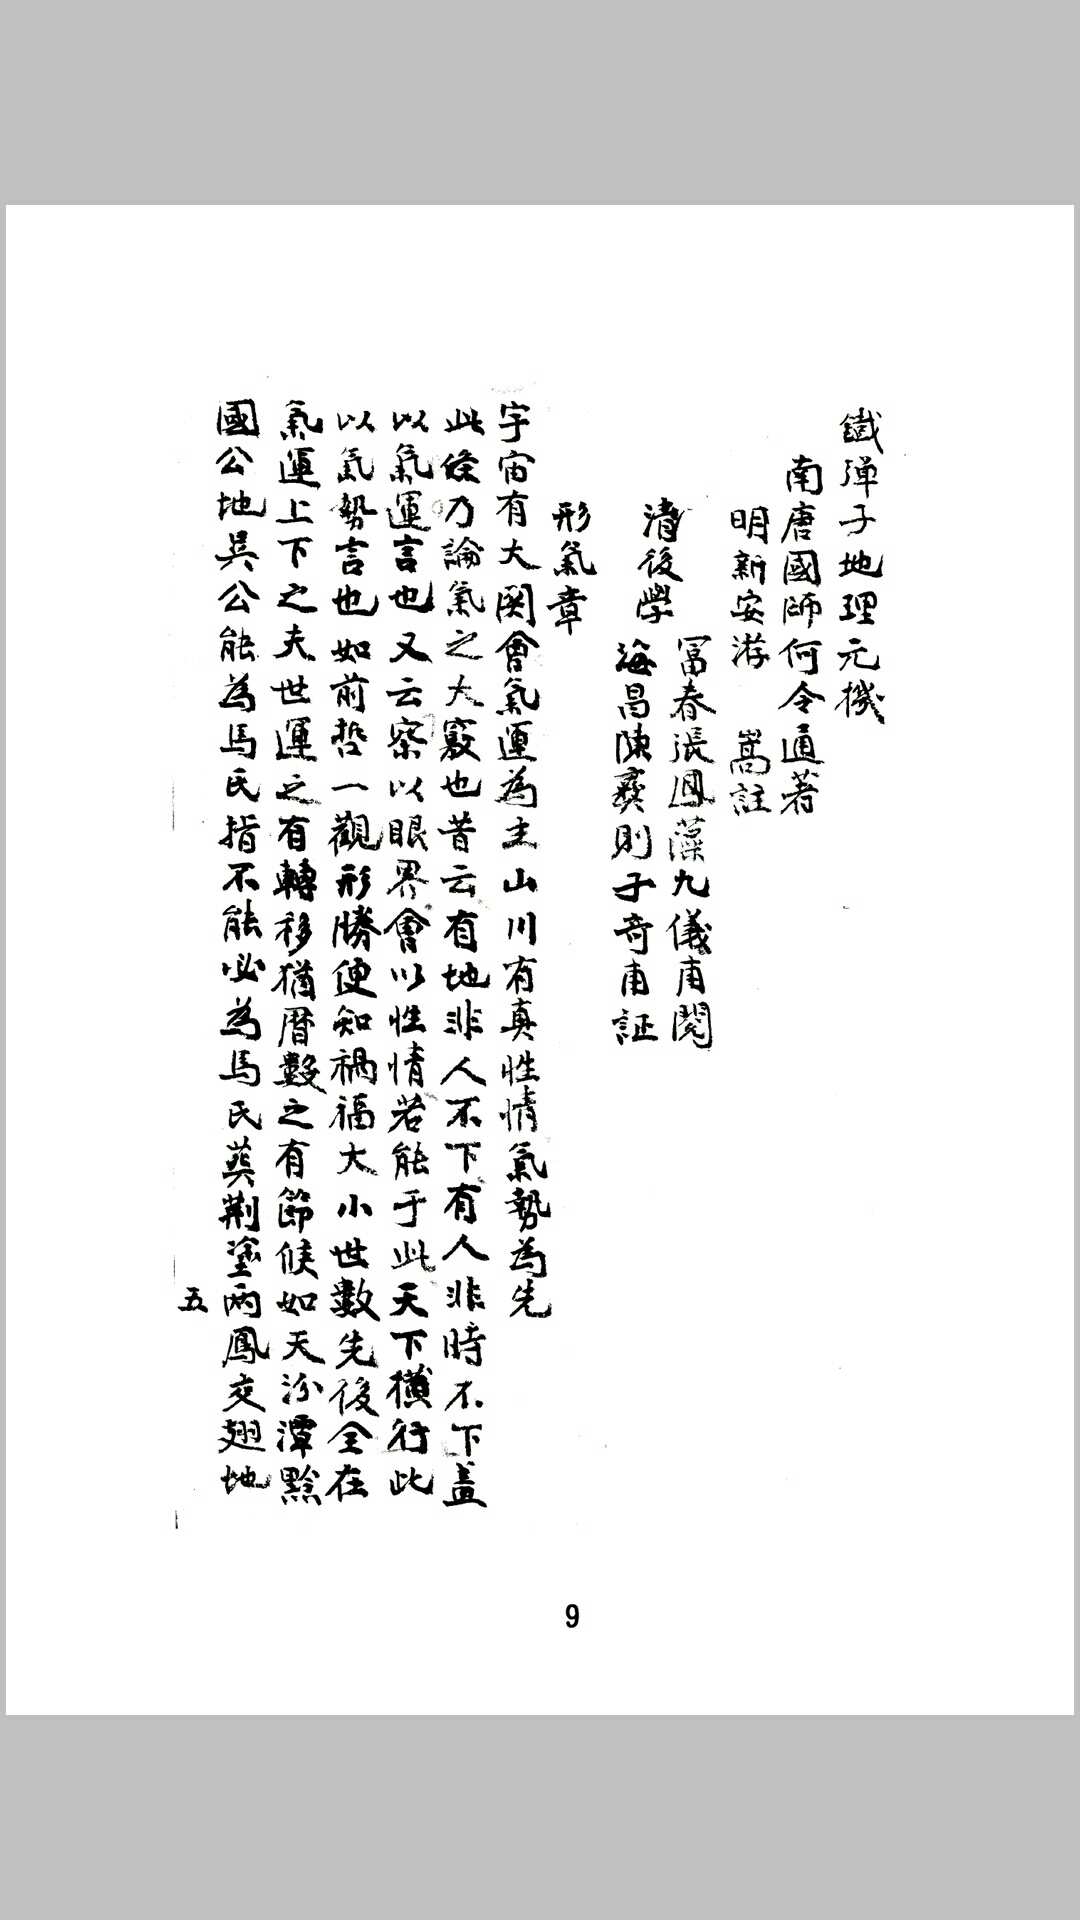 鐵弾子地理元機
南唐國師何令通著
明新安游　嵩註
清後學
冨春張鳳藻九儀甫閱
海昌陳彛則子奇甫証
形氣章
宇宙有大関會氣運為主山川有真性情氣勢為先
此條乃論氣之大竅也昔云有地非人不下有人非時不下盖
以氣運言也又云察以眼界會以性情若能于此天下橫行此
以氣勢言也如前哲一觀形勝便知禍福大小世數先後全在
氣運上下之夫世運之有轉移猶曆數之有節候如天汾潭黔
國公地吳公能為馬氏指不能必為馬氏葬荆塗兩鳳交翅地
五
9